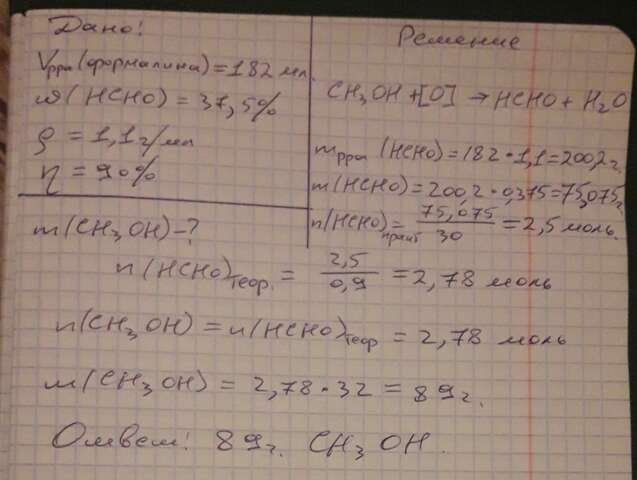 Дано:
Vр-ра (формалина) = 182 мл.
ω(HCHO) = 37,5%
ρ = 1,1 г/мл
η = 90%
m(CH3OH) - ?
Решение
CH3OH + [O] → HCHO + H2O
mр-ра (HCHO) = 182 · 1,1 = 200,2 г.
m(HCHO) = 200,2 · 0,375 = 75,075 г.
n(HCHO)практ = 75,075 / 30 = 2,5 моль.
n(HCHO)теор. = 2,5 / 0,9 = 2,78 моль
n(CH3OH) = n(HCHO)теор = 2,78 моль
m(CH3OH) = 2,78 · 32 = 89 г.
Ответ: 89 г. CH3OH.